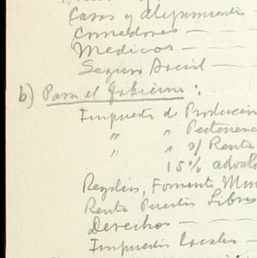 Casas y alojamiento —
Comedores —
Medicos —
Seguro Social —
b) Para el Gobierno:
Impuesto de Producción
" " Pertenenc
" " s/ Renta
15% adval
Regalías, Fomento Min
Renta Puertos Libres
Derechos —
Impuestos Locales —